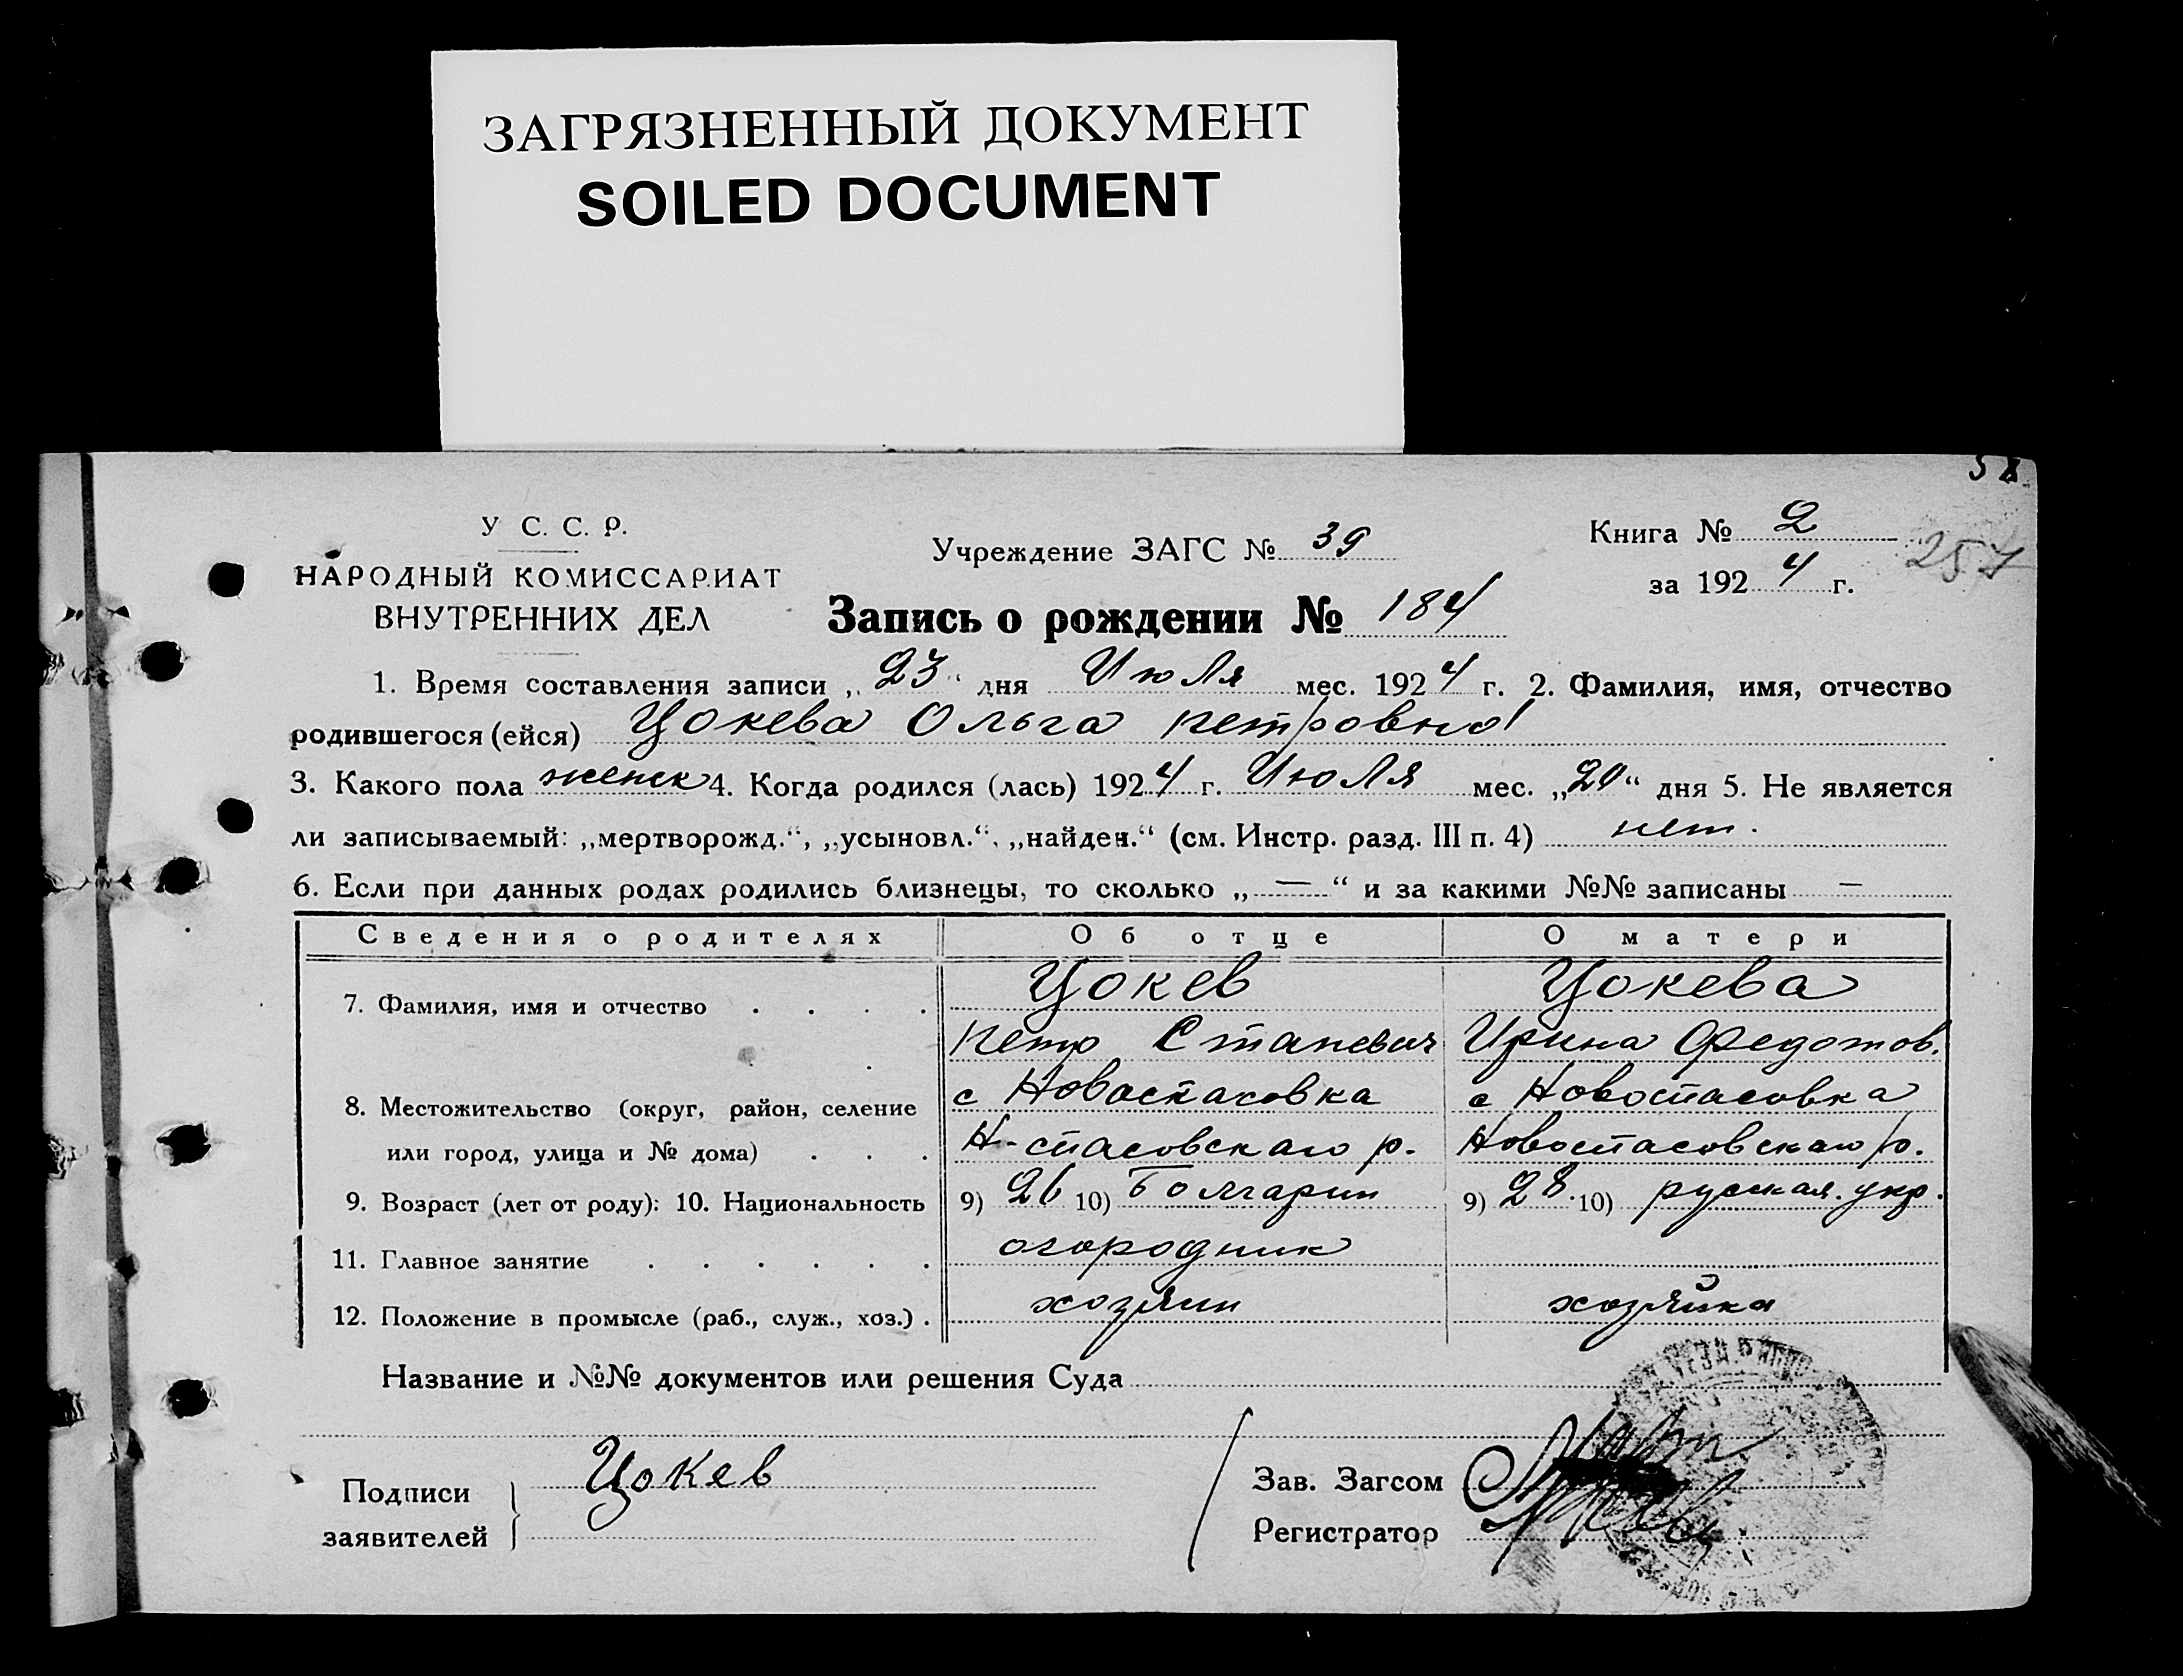 ЗАГРЯЗНЕННЫЙ ДОКУМЕНТ
SOILED DOCUMENT
У С. С. Р.
НАРОДНЫЙ КОМИССАРИАТ
ВНУТРЕННИХ ДЕЛ
Учреждение ЗАГС № 39
Книга № 2
за 1924 г.
257
Запись о рождении № 184
1. Время составления записи „23“ дня Июля мес. 1924 г. 2. Фамилия, имя, отчество
родившегося (ейся) Цокева Ольга петровна
3. Какого пола женск 4. Когда родился (лась) 1924 г. Июля мес. „20“ дня 5. Не является
ли записываемый: „мертворожд.“, „усыновл.“, „найден.“ (см. Инстр. разд. III п. 4) нет.
6. Если при данных родах родились близнецы, то сколько „—“ и за какими №№ записаны —
Сведения о родителях Об отце О матери
7. Фамилия, имя и отчество . . . . Цокев Цокева
петр Станевич Ирина Федотов.
8. Местожительство (округ, район, селение с Новоспасовка с Новоспасовка
или город, улица и № дома) . . . Н-спасовскаго р. Новоспасовскаго р.
9. Возраст (лет от роду): 10. Национальность 9) 26 10) Болгарин 9) 28. 10) русская. укр.
11. Главное занятие . . . . . . огородник
12. Положение в промысле (раб., служ., хоз.) . хозяин хозяйка
Название и №№ документов или решения Суда
Подписи заявителей } Цокев
Зав. Загсом
Регистратор